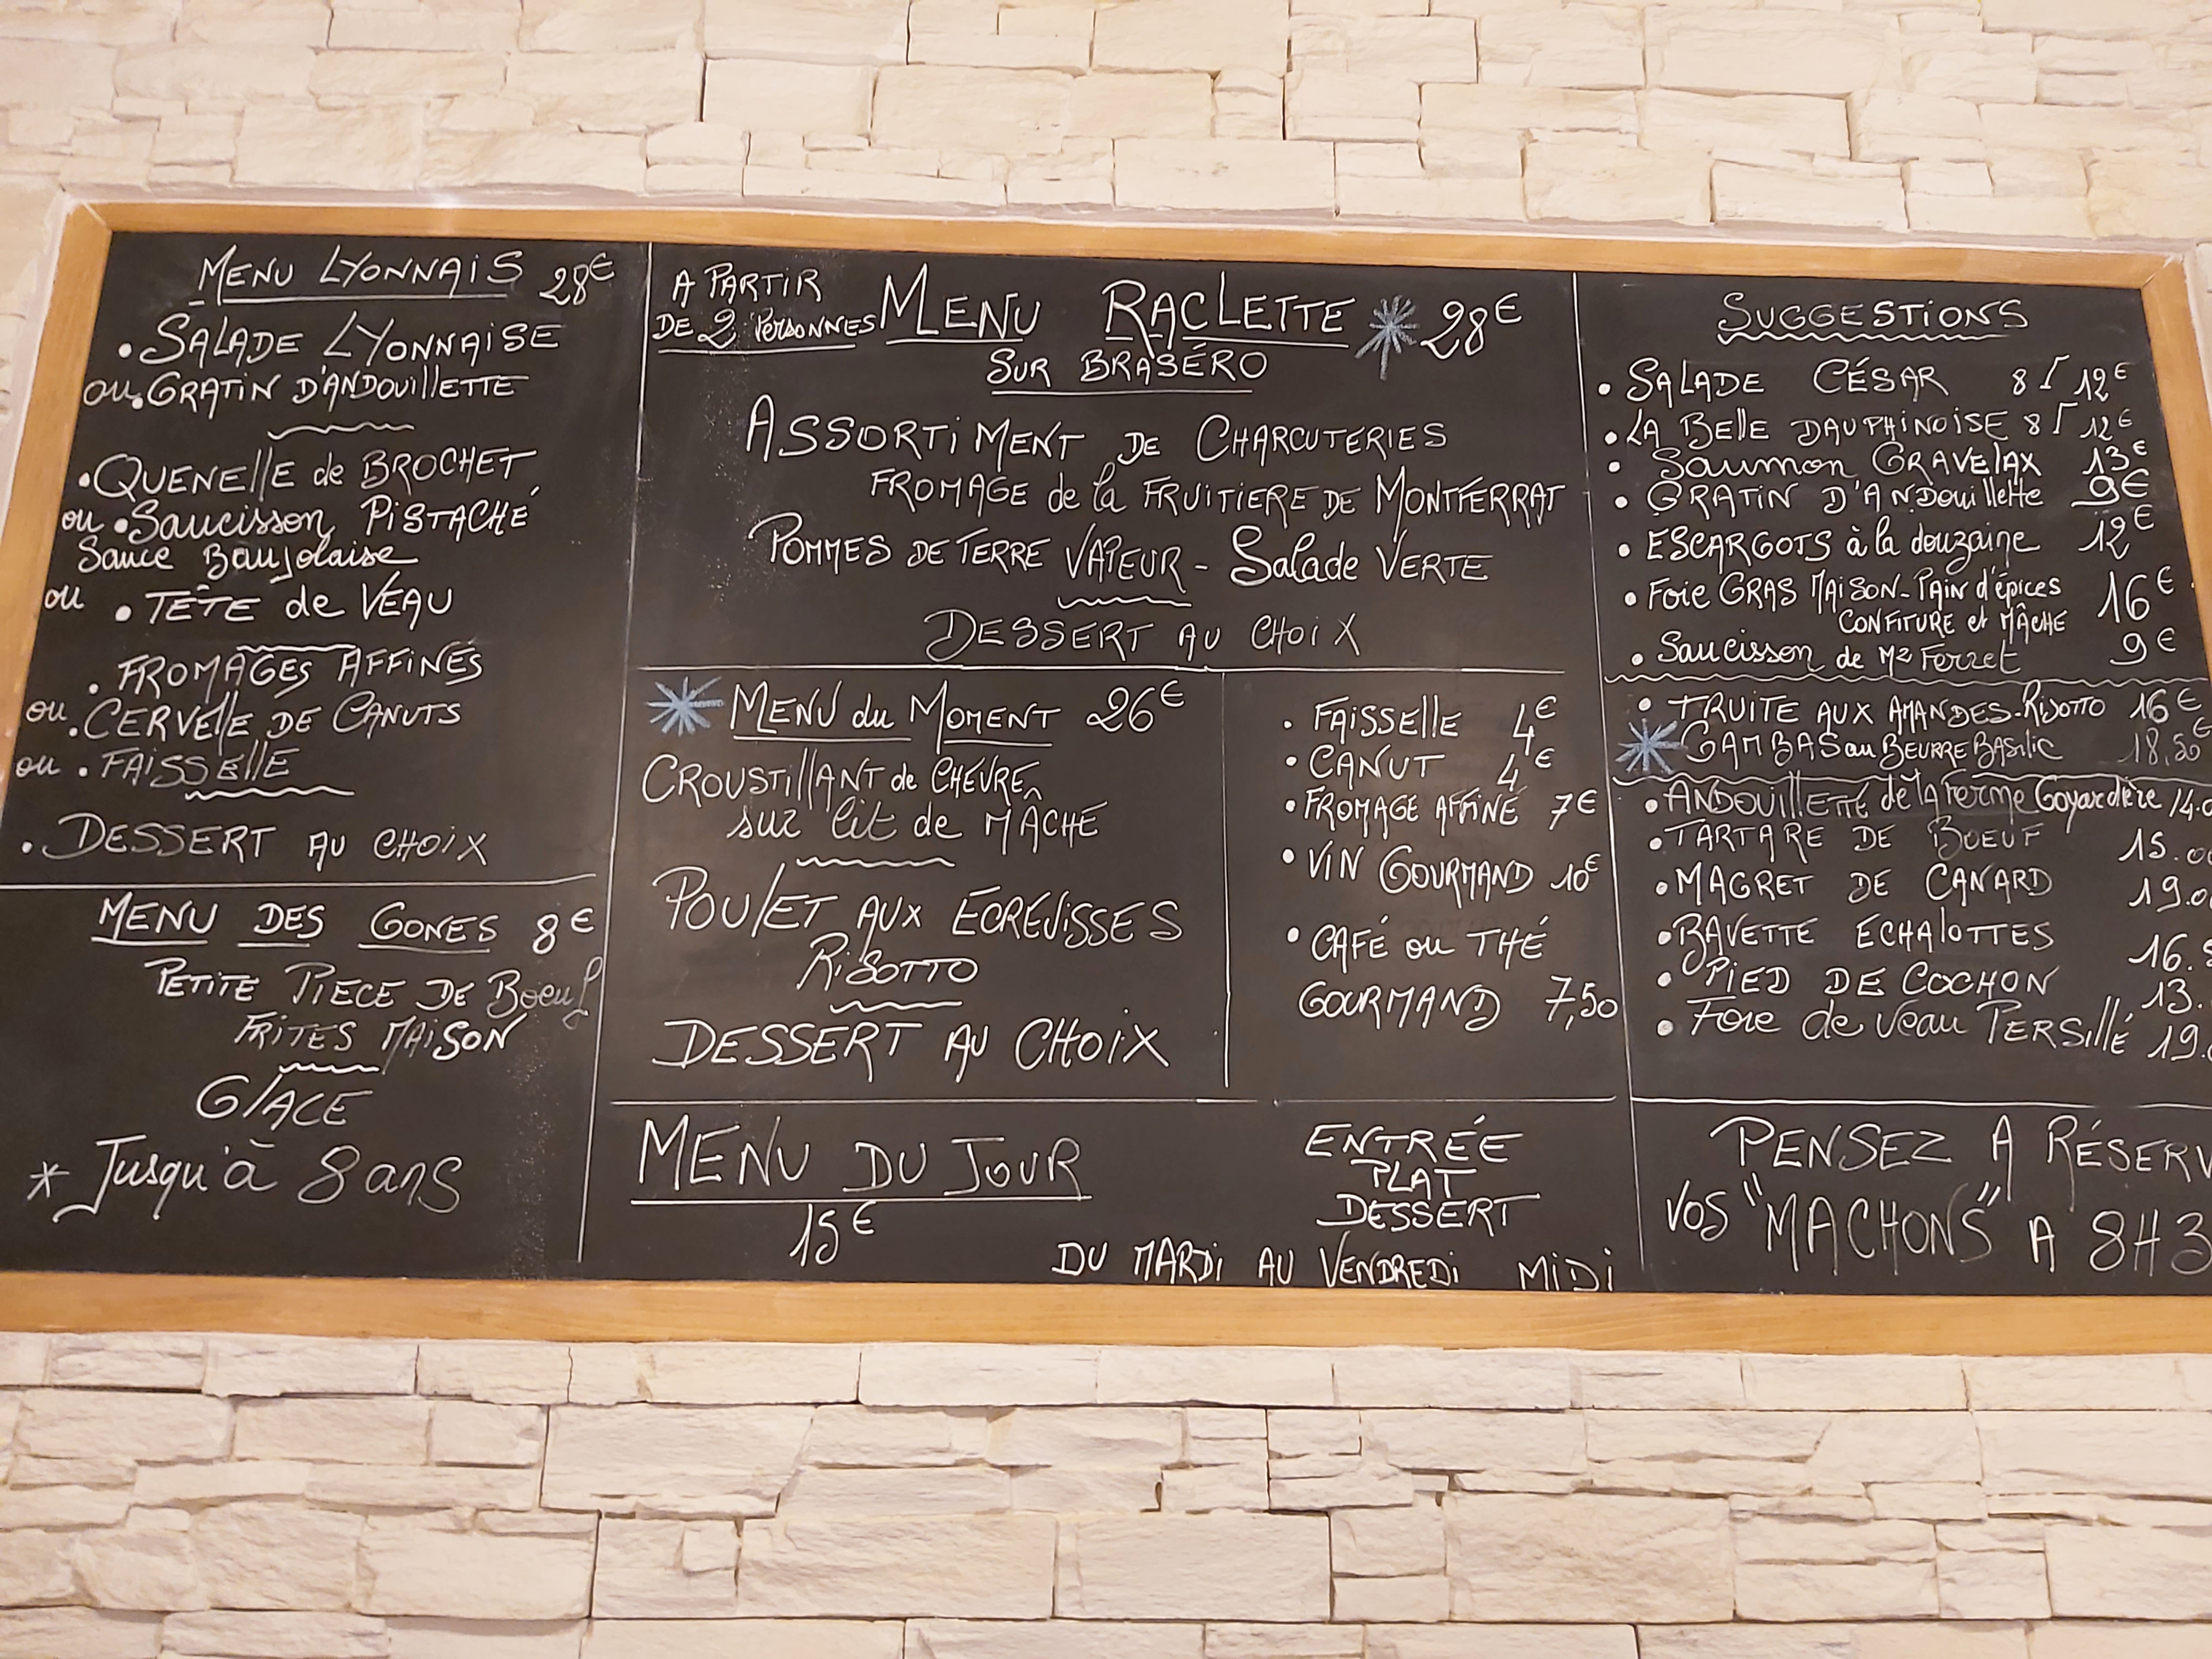 MENU LYONNAIS 28€
• SALADE LYONNAISE
ou • GRATIN D'ANDOUILLETTE
• QUENELLE de BROCHET
ou • Saucisson PISTACHÉ
Sauce Baujolaise
ou • TÊTE de VEAU
• FROMAGES AFFINÉS
ou • CERVELLE DE CANUTS
ou • FAISSELLE
• DESSERT AU CHOIX
MENU DES GONES 8€
PETITE PIECE DE Boeuf
FRITES MAISON
GLACE
* Jusqu'à 8 ans
A PARTIR
DE 2 PERSONNES
MENU RACLETTE 28€
SUR BRASÉRO
ASSORTIMENT DE CHARCUTERIES
FROMAGE de la FRUITIERE DE MONTFERRAT
POMMES DE TERRE VAPEUR - Salade VERTE
DESSERT AU CHOIX
MENU du MOMENT 26€
CROUSTILLANT de CHÈVRE
sur lit de MÂCHE
POULET AUX ECREVISSES
RISOTTO
DESSERT AU CHOIX
• FAISSELLE 4€
• CANUT 4€
• FROMAGE AFFINÉ 7€
• VIN GOURMAND 10€
• CAFÉ ou THÉ
GOURMAND 7,50
MENU DU JOUR
15€
ENTRÉE
PLAT
DESSERT
DU MARDI AU VENDREDI MIDI
SUGGESTIONS
• SALADE CÉSAR 8 / 12€
• LA BELLE DAUPHINOISE 8 / 12€
• Saumon GRAVELAX 13€
• GRATIN D'ANDouillette 9€
• ESCARGOTS à la douzaine 12€
• Foie GRAS MAISON - PAIN d'épices 16€
CONFITURE et MÂCHE
• Saucisson de Mr Ferret 9€
• TRUITE AUX AMANDES - RISOTTO 16€
GAMBAS au BEURRE BASILIC 18,50€
• ANDOUILLETTE de la Ferme Goyardière 14.0
• TARTARE DE BOEUF 15.00
• MAGRET DE CANARD 19.0
• BAVETTE ECHALOTTES 16.
• PIED DE COCHON 13.
• Foie de veau PERSILLÉ 19.
PENSEZ A RÉSERV
VOS "MACHONS" A 8H3